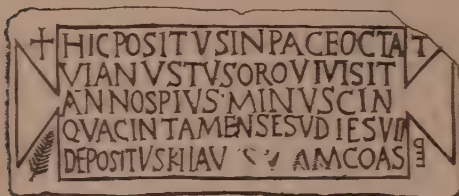 HICPOSITVSINPACEOCTA T
VIANVSTVSOROVIVISIT
ANNOSPIVS·MINVSCIN
QVACINTAMENSESVDIESVII
DEPOSITVSKLLAV AMCOAS